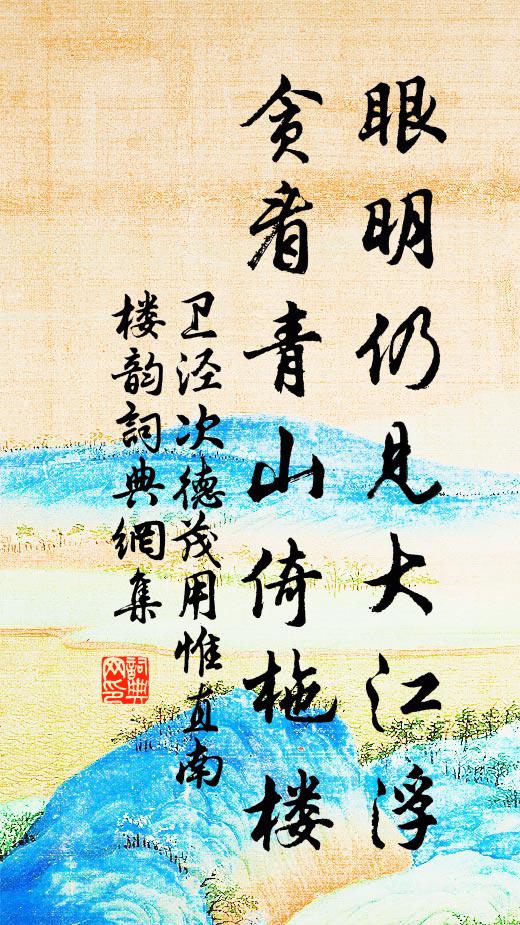 眼明仍见大江浮
贪看青山倚柂楼
卫泾次德茂用惟直南
楼韵詞典網集
詞典
网印